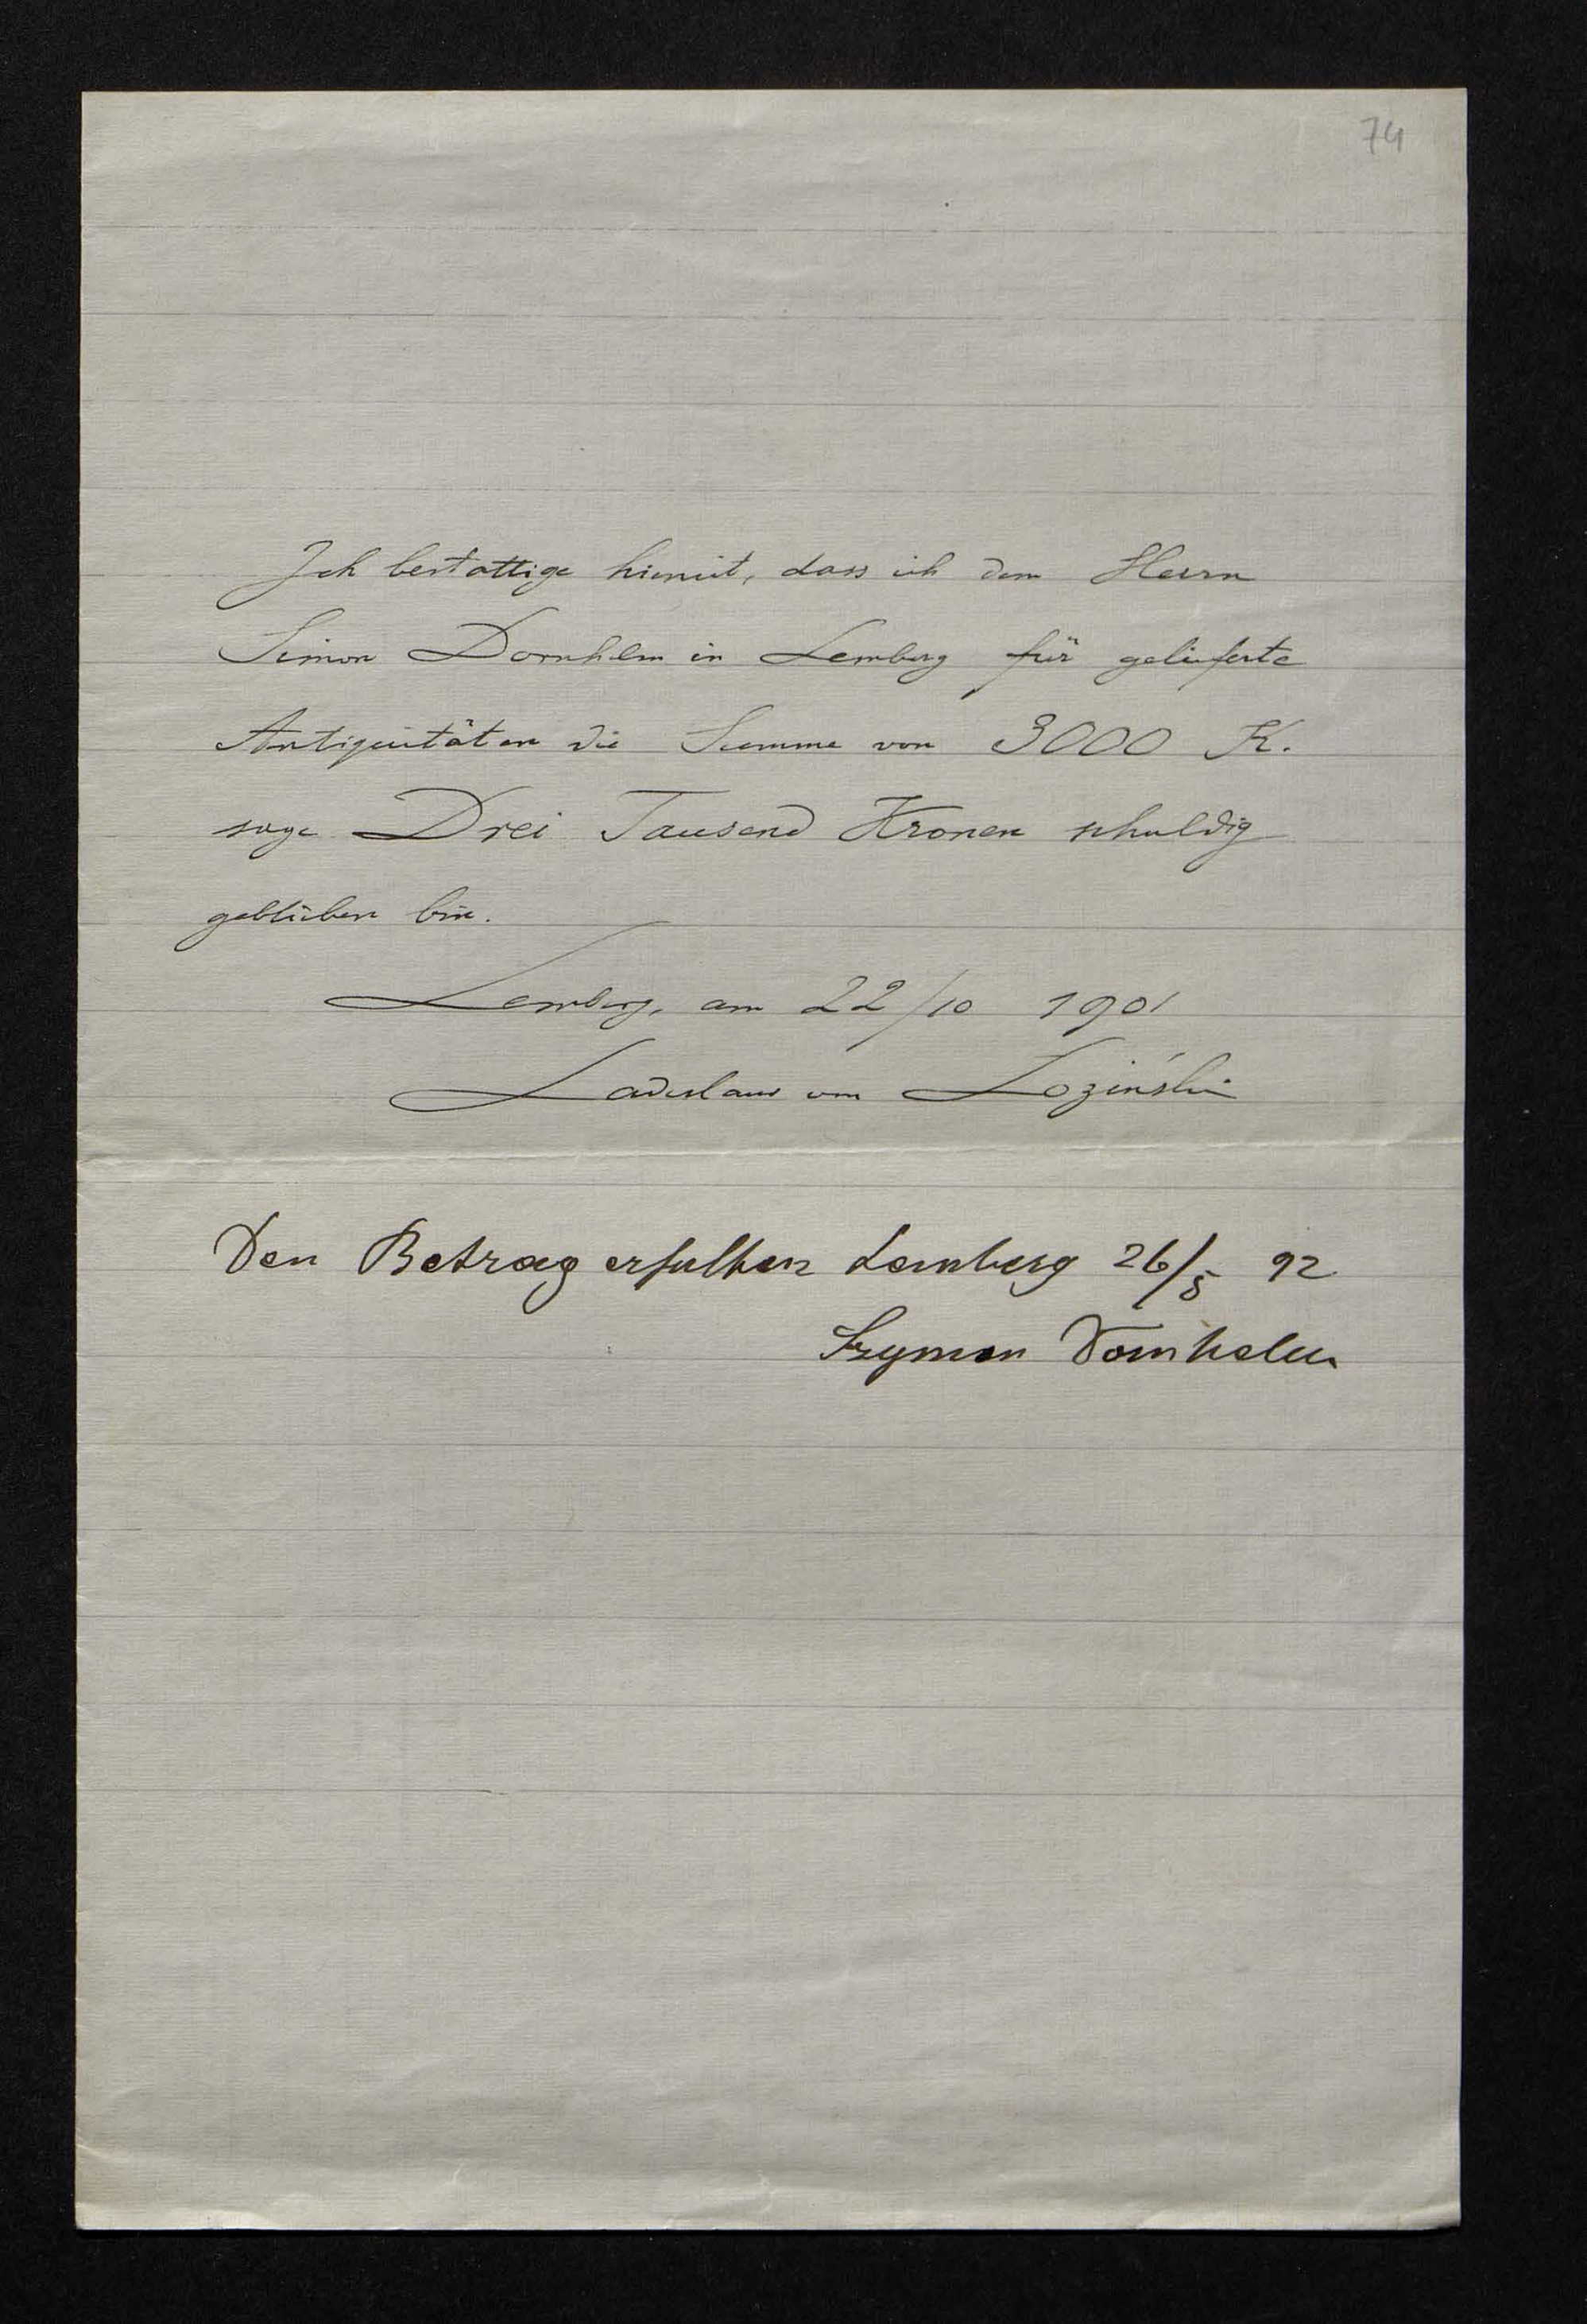 74
Ich bestattige hiemit, dass ich dem Herrn
Simon Dornhelm in Lemberg für gelieferte
Antiquitäten die Summe von 3000 K.
sage Drei Tausend Kronen schuldig
geblieben bin.
Lemberg, am 22/10 1901
Ladislaus von Łoziński
Den Betrag erhalten Lemberg 26/5 92
Szymon Dornhelm